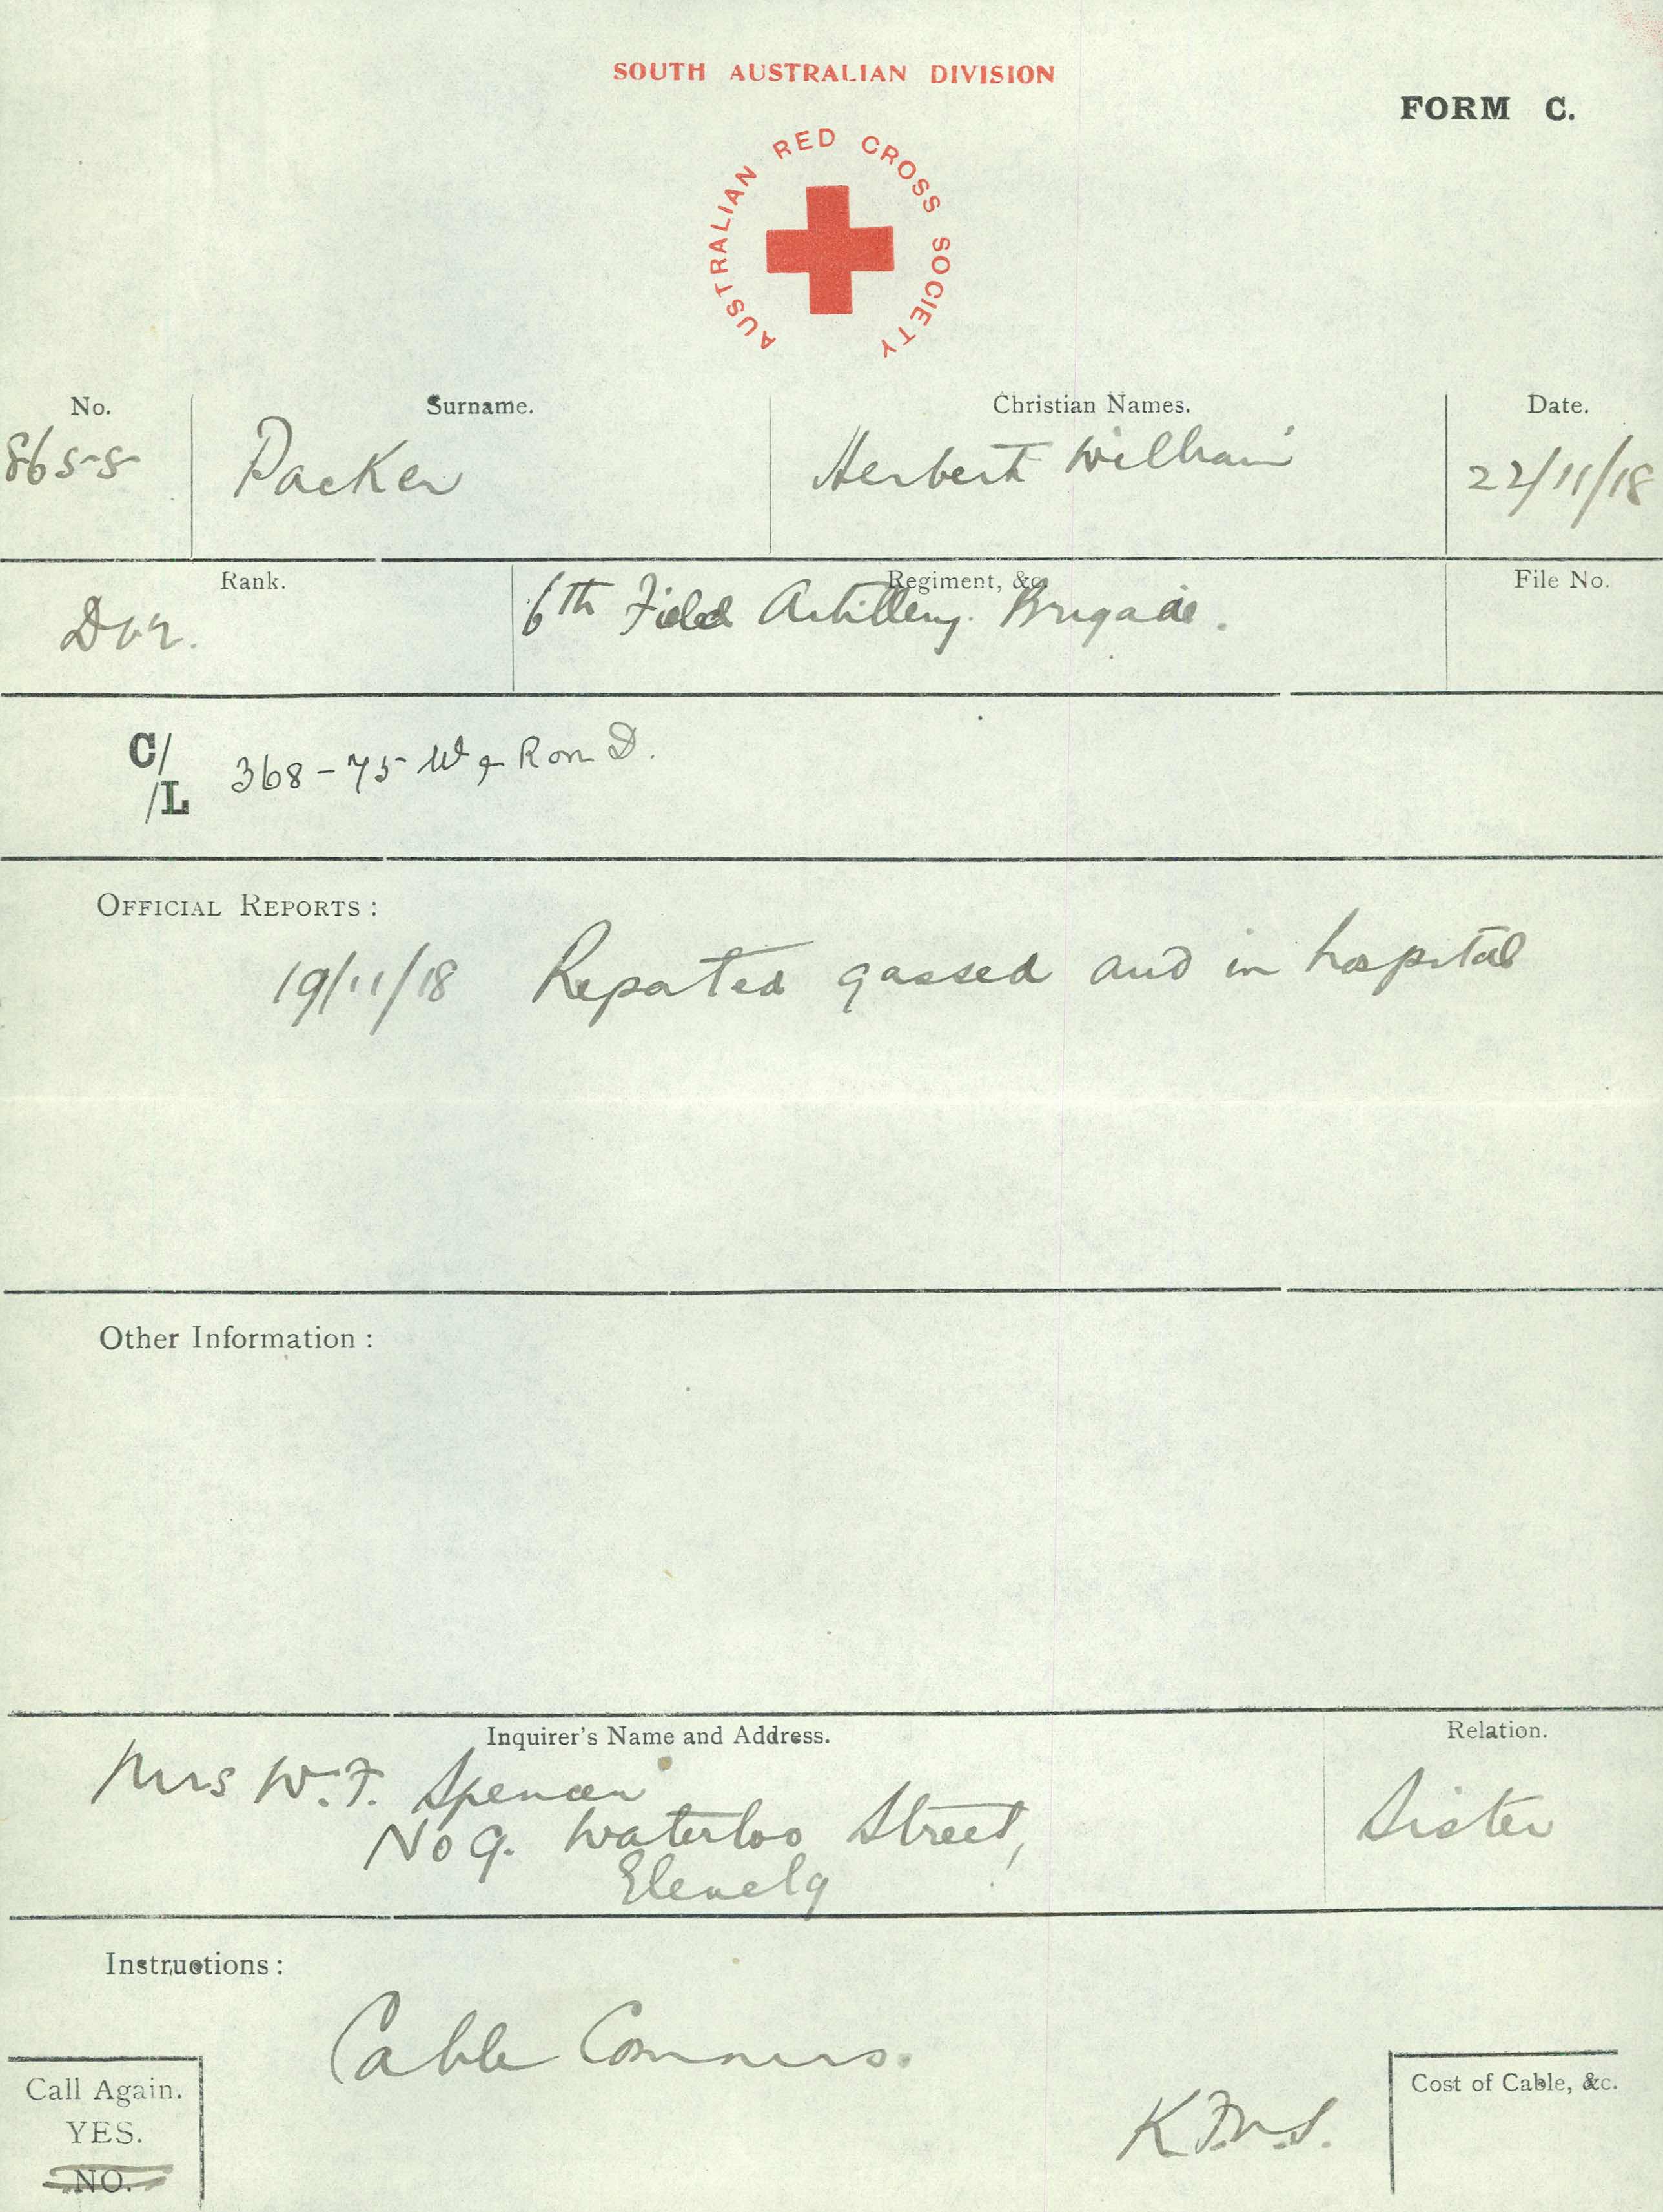 SOUTH AUSTRALIAN DIVISION
FORM C.
AUSTRALIAN RED CROSS SOCIETY
No. Surname. Christian Names. Date.
8655 Packer Herbert William 22/11/18
Rank. Regiment, &c. File No.
Dvr. 6th Field Artillery Brigade.
C/
/L 368-75 W
OFFICIAL REPORTS:
19/11/18 Reported gassed and in hospital
Other Information:
Inquirer's Name and Address. Relation.
Mrs W. F. Spencer Sister
No 9. Waterloo Street,
Glenelg
Instructions:
Cable Commrs.
Call Again.
YES.
NO.
Cost of Cable, &c.